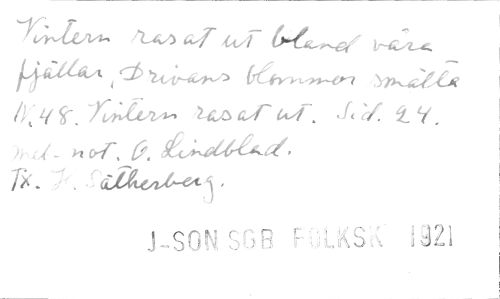 Vintern rasat ut bland våra
fjällar, Drivans blommor smälta
N. 48. Vintern rasat ut. Sid. 24.
med not. O. Lindblad.
Tx. H. Sätherberg.
J-SON SGB FOLKSK 1921